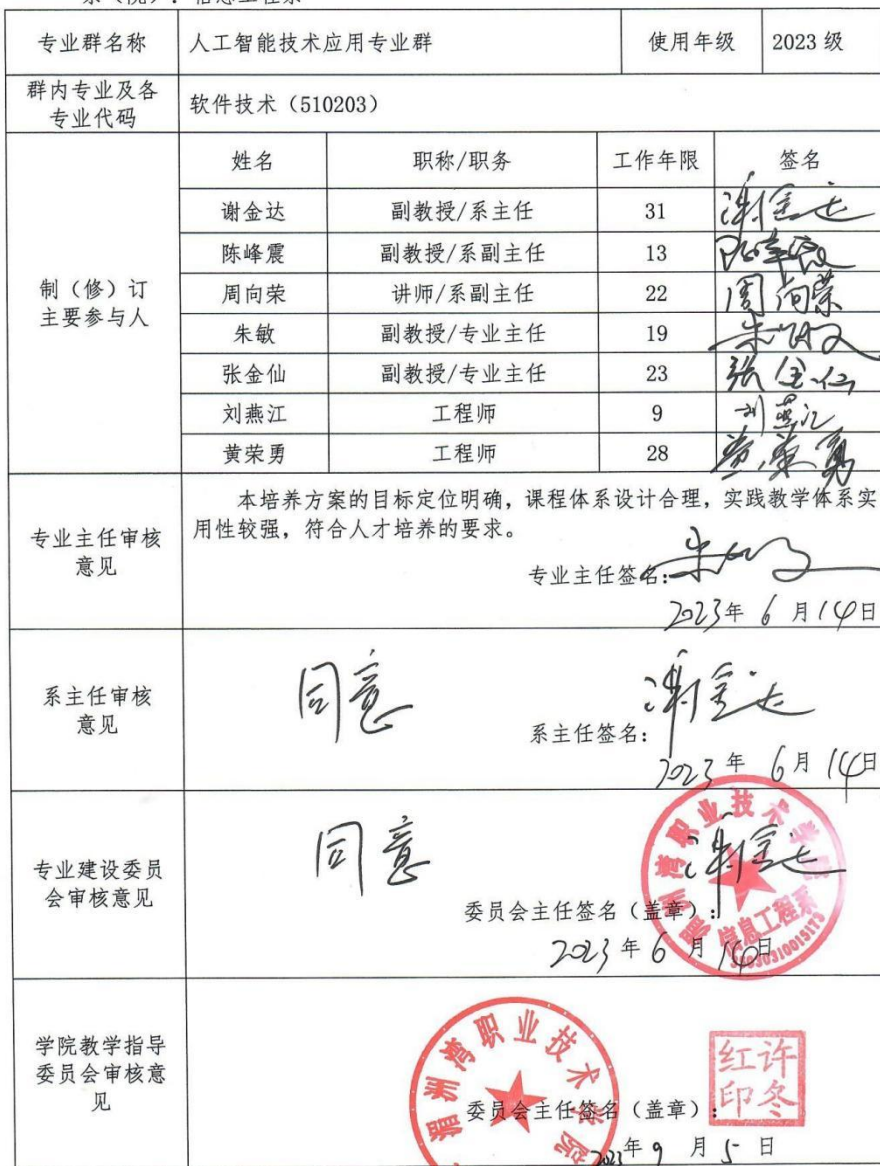 系（院）：信息工程系
专业群名称 人工智能技术应用专业群 使用年级 2023 级
群内专业及各
专业代码
软件技术（510203）
制（修）订
主要参与人
姓名 职称/职务 工作年限 签名
谢金达 副教授/系主任 31 谢金达
陈峰震 副教授/系副主任 13 陈峰震
周向荣 讲师/系副主任 22 周向荣
朱敏 副教授/专业主任 19 朱敏
张金仙 副教授/专业主任 23 张金仙
刘燕江 工程师 9 刘燕江
黄荣勇 工程师 28 黄荣勇
专业主任审核
意见
本培养方案的目标定位明确，课程体系设计合理，实践教学体系实
用性较强，符合人才培养的要求。
专业主任签名：朱敏
2023年 6 月14日
系主任审核
意见
同意
系主任签名：谢金达
2023 年 6月 14日
专业建设委员
会审核意见
同意
湄洲湾职业技术学院
谢金达
委员会主任签名（盖章）：
信息工程系
2023 年 6 月 14日
学院教学指导
委员会审核意
见
湄洲湾职业技术学院
许冬红印
委员会主任签名（盖章）：
2023年 9 月 5 日